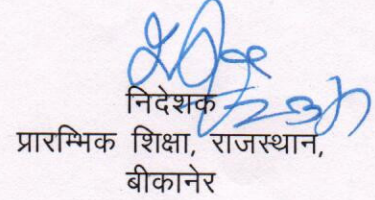 निदेशक
प्रारम्भिक शिक्षा, राजस्थान,
बीकानेर